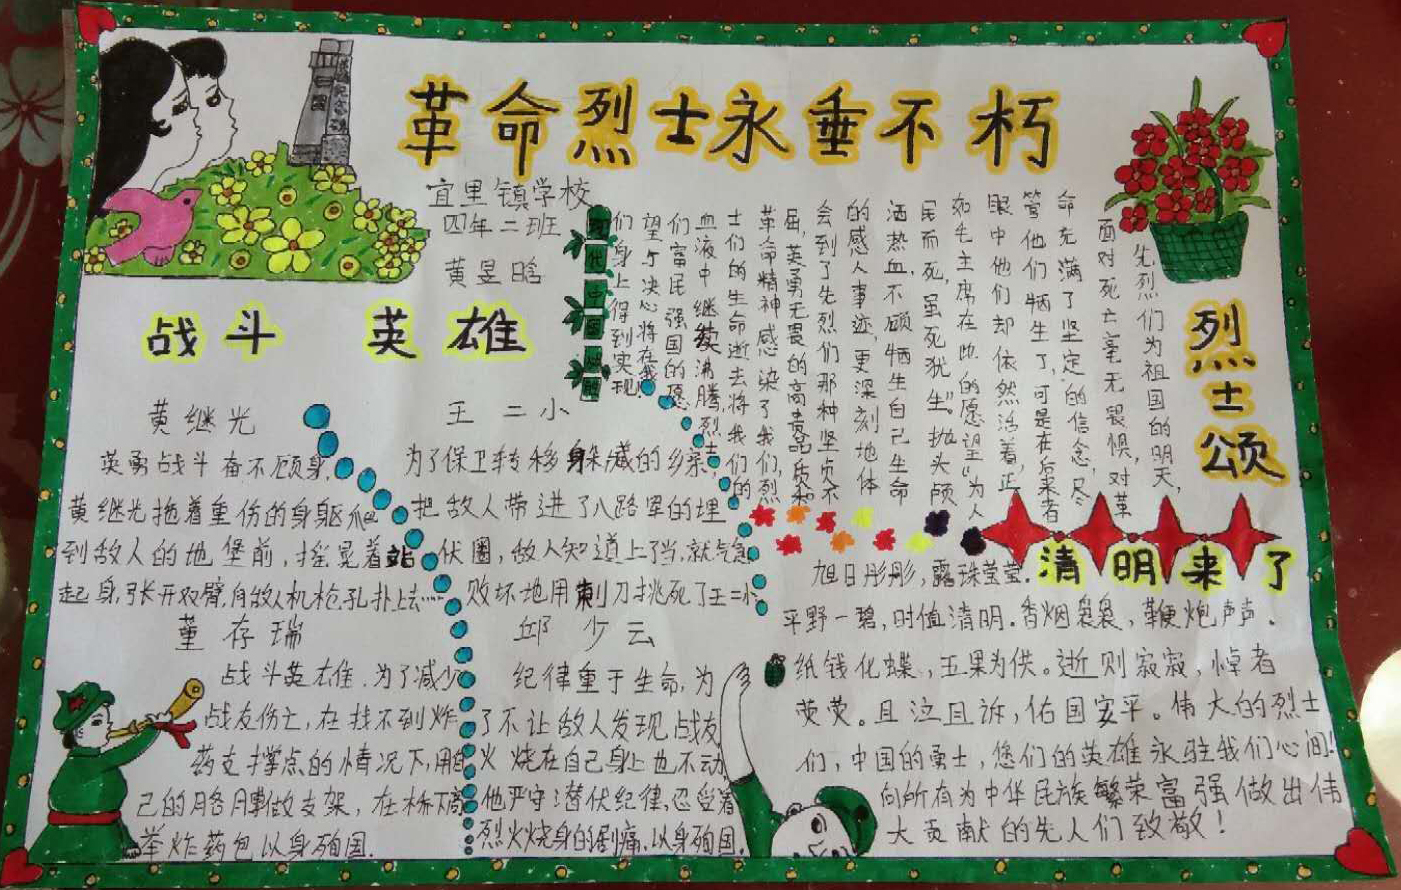 革命烈士永垂不朽
宜里镇学校
四年二班
黄昱晗
战斗 英雄
黄继光
英勇战斗奋不顾身,
黄继光拖着重伤的身躯爬
到敌人的地堡前,摇晃着站
起身,张开双臂,向敌人机枪孔扑上去……
王二小
为了保卫转移身藏的乡亲,
把敌人带进了八路军的埋
伏圈,敌人知道上了当,就气急
败坏地用刺刀挑死了王二小
董存瑞
战斗英雄.为了减少
战友伤亡,在找不到炸
药支撑点的情况下,用自
己的胳膊做支架,在桥下高
举炸药包以身殉国.
邱少云
纪律重于生命,为
了不让敌人发现战友
火烧在自己身上也不动
他严守潜伏纪律,忍受着
烈火烧身的剧痛,以身殉国.
烈士颂
先烈们为祖国的明天,
面对死亡毫无畏惧,对革
命充满了坚定的信念,尽
管他们牺生了,可是在后来者
眼中他们却依然活着,正
如毛主席在此的愿望"为人
民而死,虽死犹生"。抛头颅
洒热血,不顾牺生自己生命
的感人事迹,更深刻地体
会到了先烈们那种坚贞不
屈,英勇无畏的高贵品质和
革命精神感染了我们,烈
士们的生命逝去将我们的
血液中继续沸腾,烈士
们富民强国的愿
望与决心将在我
们身上得到实现!
时代中国
清明来了
旭日彤彤,露珠莹莹.
平野一碧,时值清明.香烟袅袅,鞭炮声声.
纸钱化蝶,五果为供。逝则寂寂,悼者
荧荧。且泣且诉,佑国安平。伟大的烈士
们,中国的勇士,您们的英雄永驻我们心间!
向所有为中华民族繁荣富强做出伟
大贡献的先人们致敬!